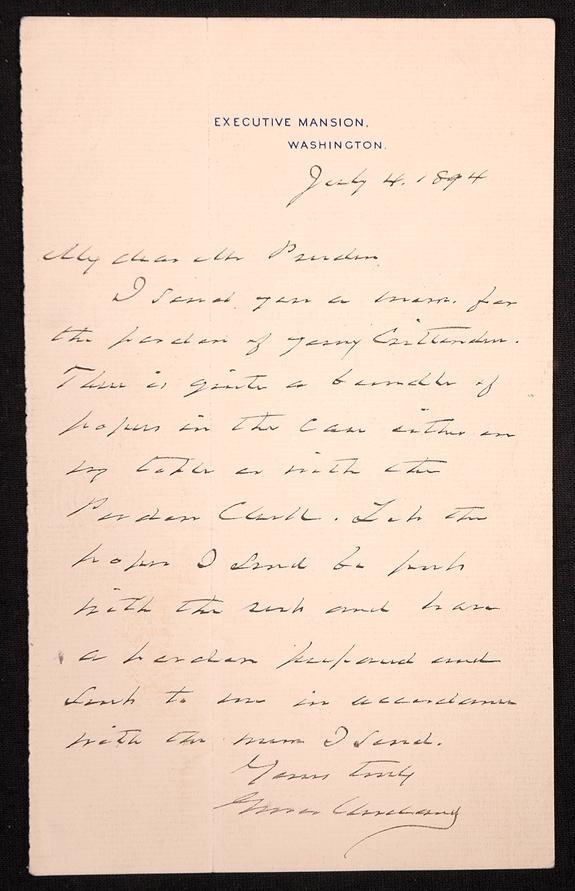 EXECUTIVE MANSION,
WASHINGTON.
July 4. 1894
My dear Mr Pruden
I send you a mem. for
the pardon of young Crittenden.
There is quite a bundle of
papers in the case either on
my table or with the
Pardon Clerk. Let the
paper I send be put
with the rest and have
a pardon prepared and
sent to me in accordance
with the mem I send.
Yours truly
Grover Cleveland